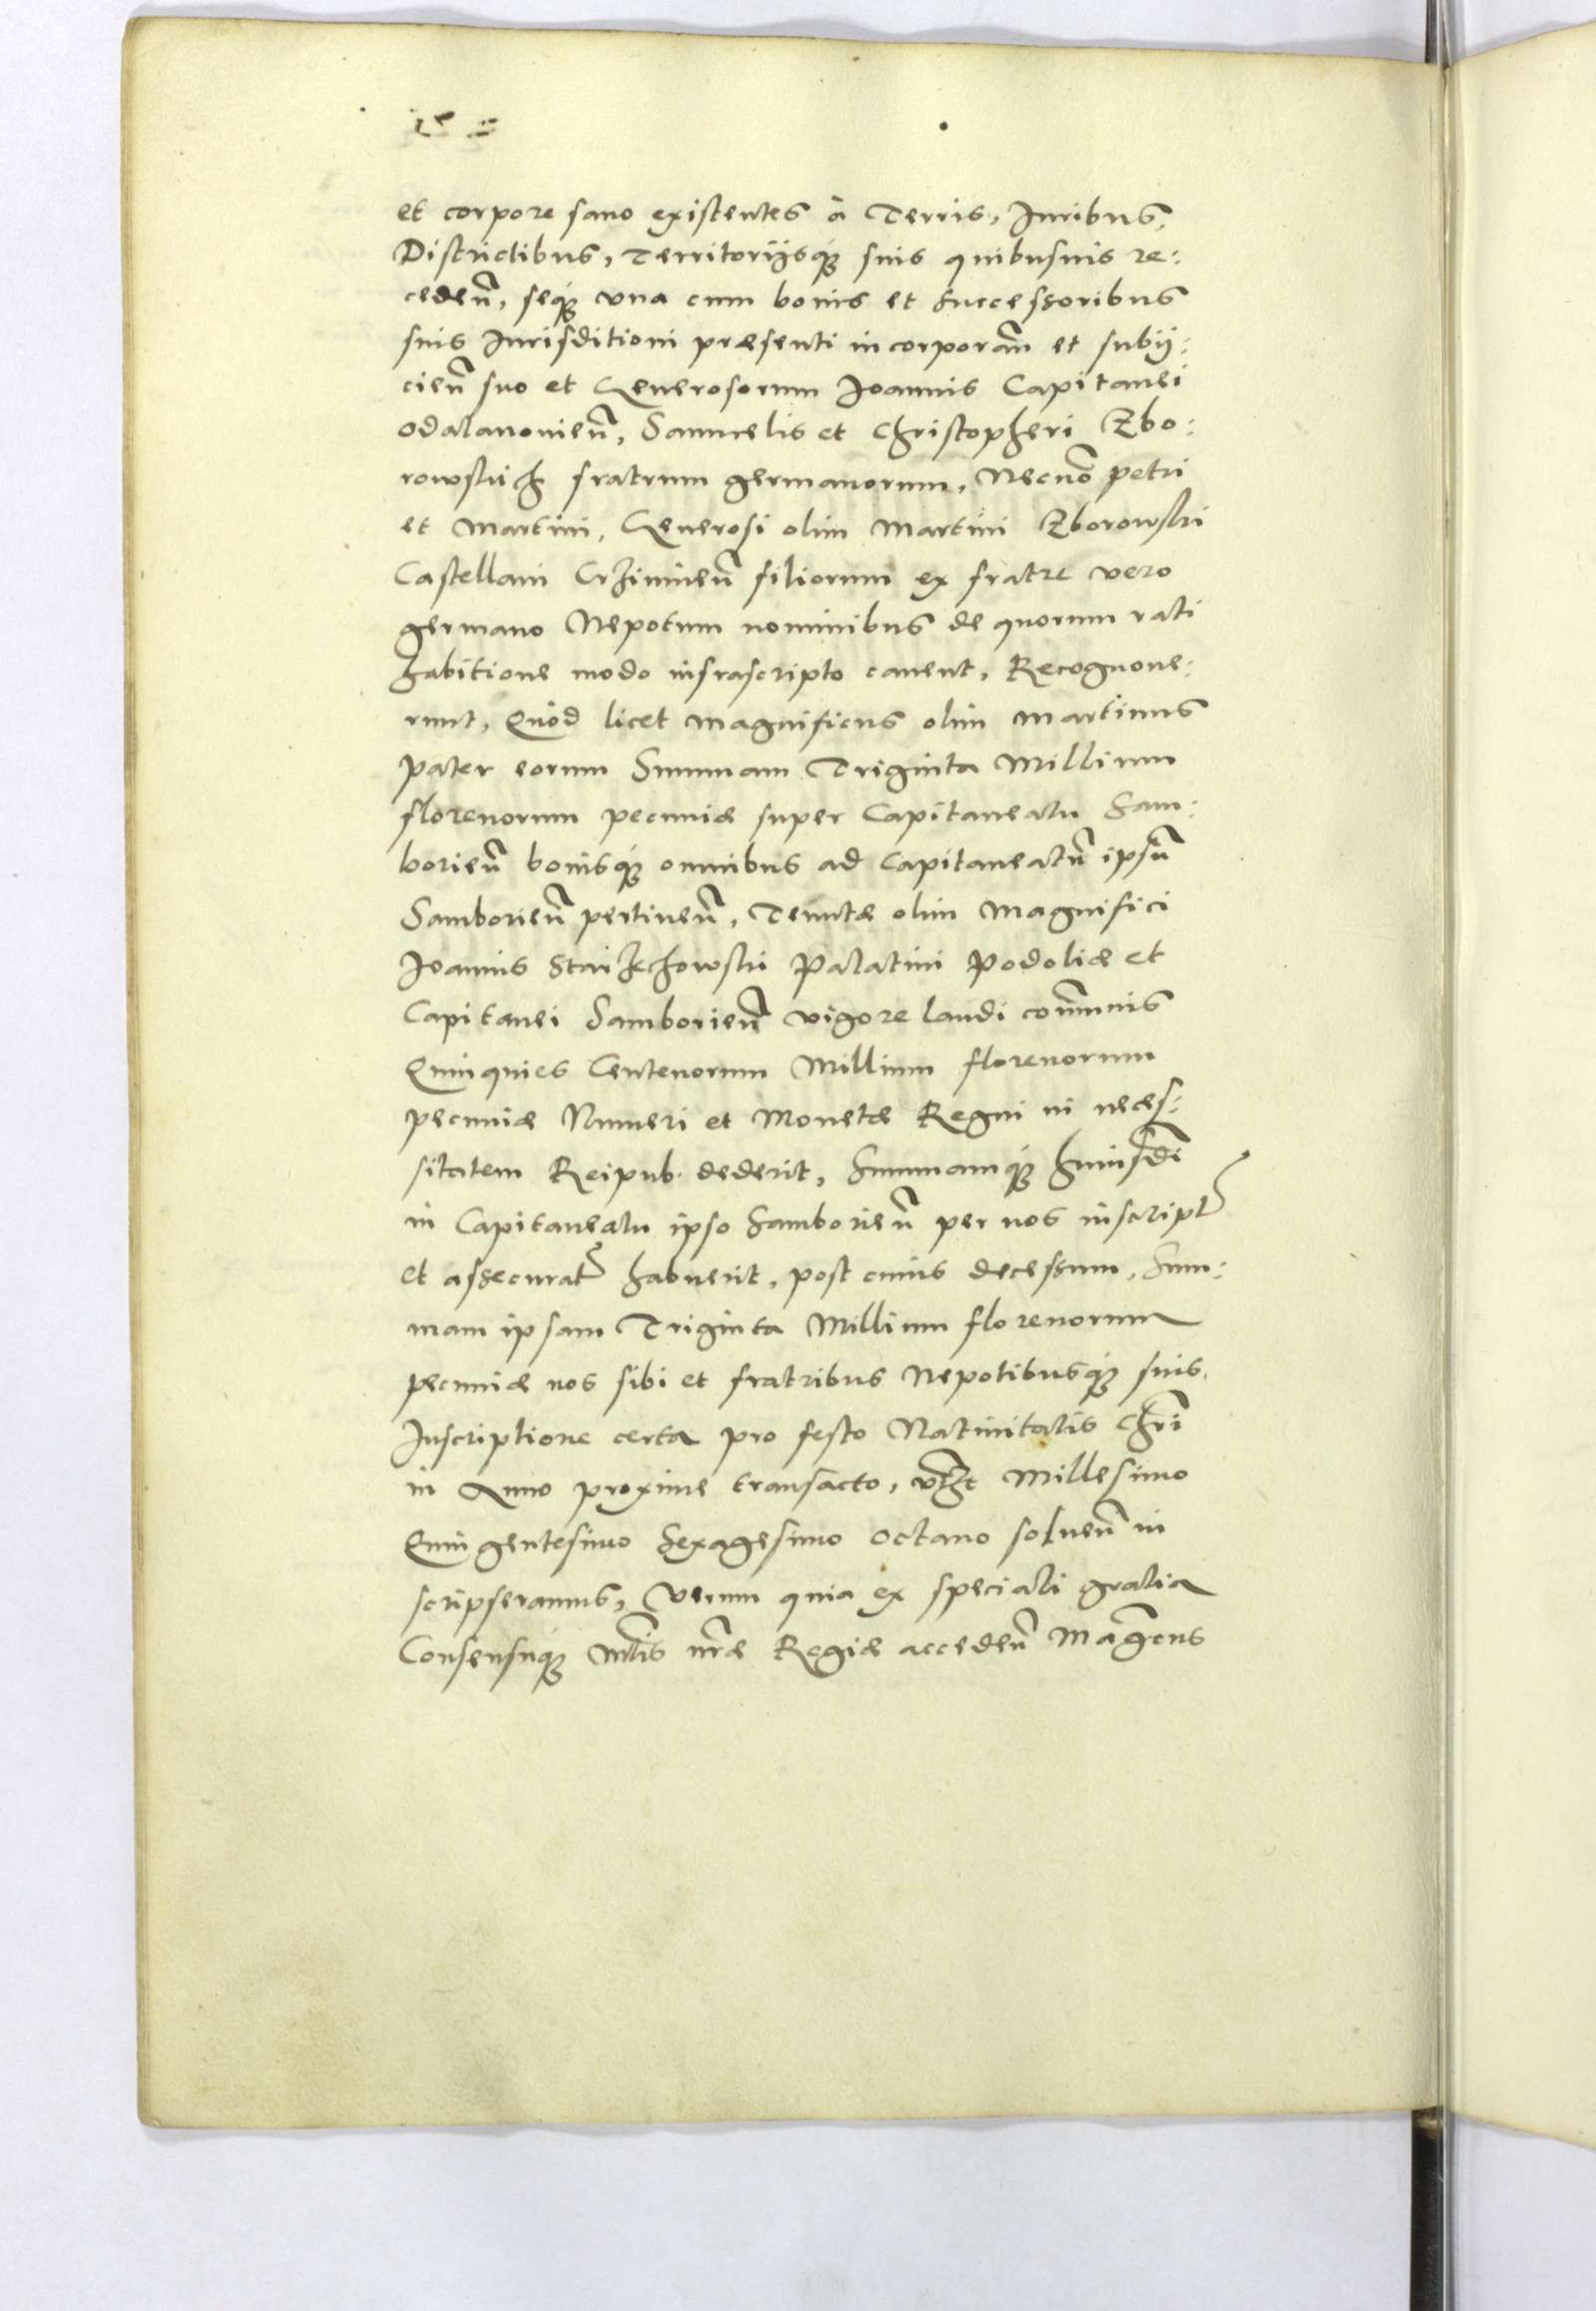 et corpore sano existentes à Terris, Iuribus,
Districtibus, Territorijsq́ꝫ suis quibusuis re:
cedeñ, seq́ꝫ vna cum bonis et successoribus
suis Iurisditioni præsenti incorporañ et subij:
cieñ suo et Generosorum Ioannis Capitanei
odalanouieñ, Samuelis et Christopheri Zbo:
rowskich fratrum germanorum, Necnō petri
et Martini, Generosi olim Martini Zborowski
Castellani Crzivineñ filiorum ex fratre vero
germano Nepotum nominibus de quorum rati
habitione modo infrascripto cauent, Recognoue:
runt, Quòd licet Magnificus olim Martinus
pater eorum Summam Triginta Millium
florenorum pecuniæ super Capitaneatu Sam:
borieñ bonisq́ꝫ omnibus ad Capitaneatū ipsū
Samborieñ pertineñ, Tenutæ olim Magnifici
Ioannis Starzechowski Palatini podoliæ et
Capitanei Samborieñ vigore laudi com̄unis
Quinquies Centenorum Millium florenorum
pecuniæ Numeri et Monetæ Regni in neces:
sitatem Reipub. dederit, Summamq́ꝫ huiusdi
in Capitaneatu ipso Samborieñ per nos inscript
et assecurat habuerit, post cuius decessum, Sum:
mam ipsam Triginta Millium florenorum
pecuniæ nos sibi et fratribus Nepotibusq́ꝫ suis,
Inscriptione certa pro festo Natiuitatis Chri
in Anno proxime transacto, vtzt Millesimo
Quingentesimo Sexagesimo octauo solueñ in
scripseramus, Verum quia ex speciali gratia
Consensuq́ꝫ Mtis nr̄æ Regiæ accedeñ Magcus